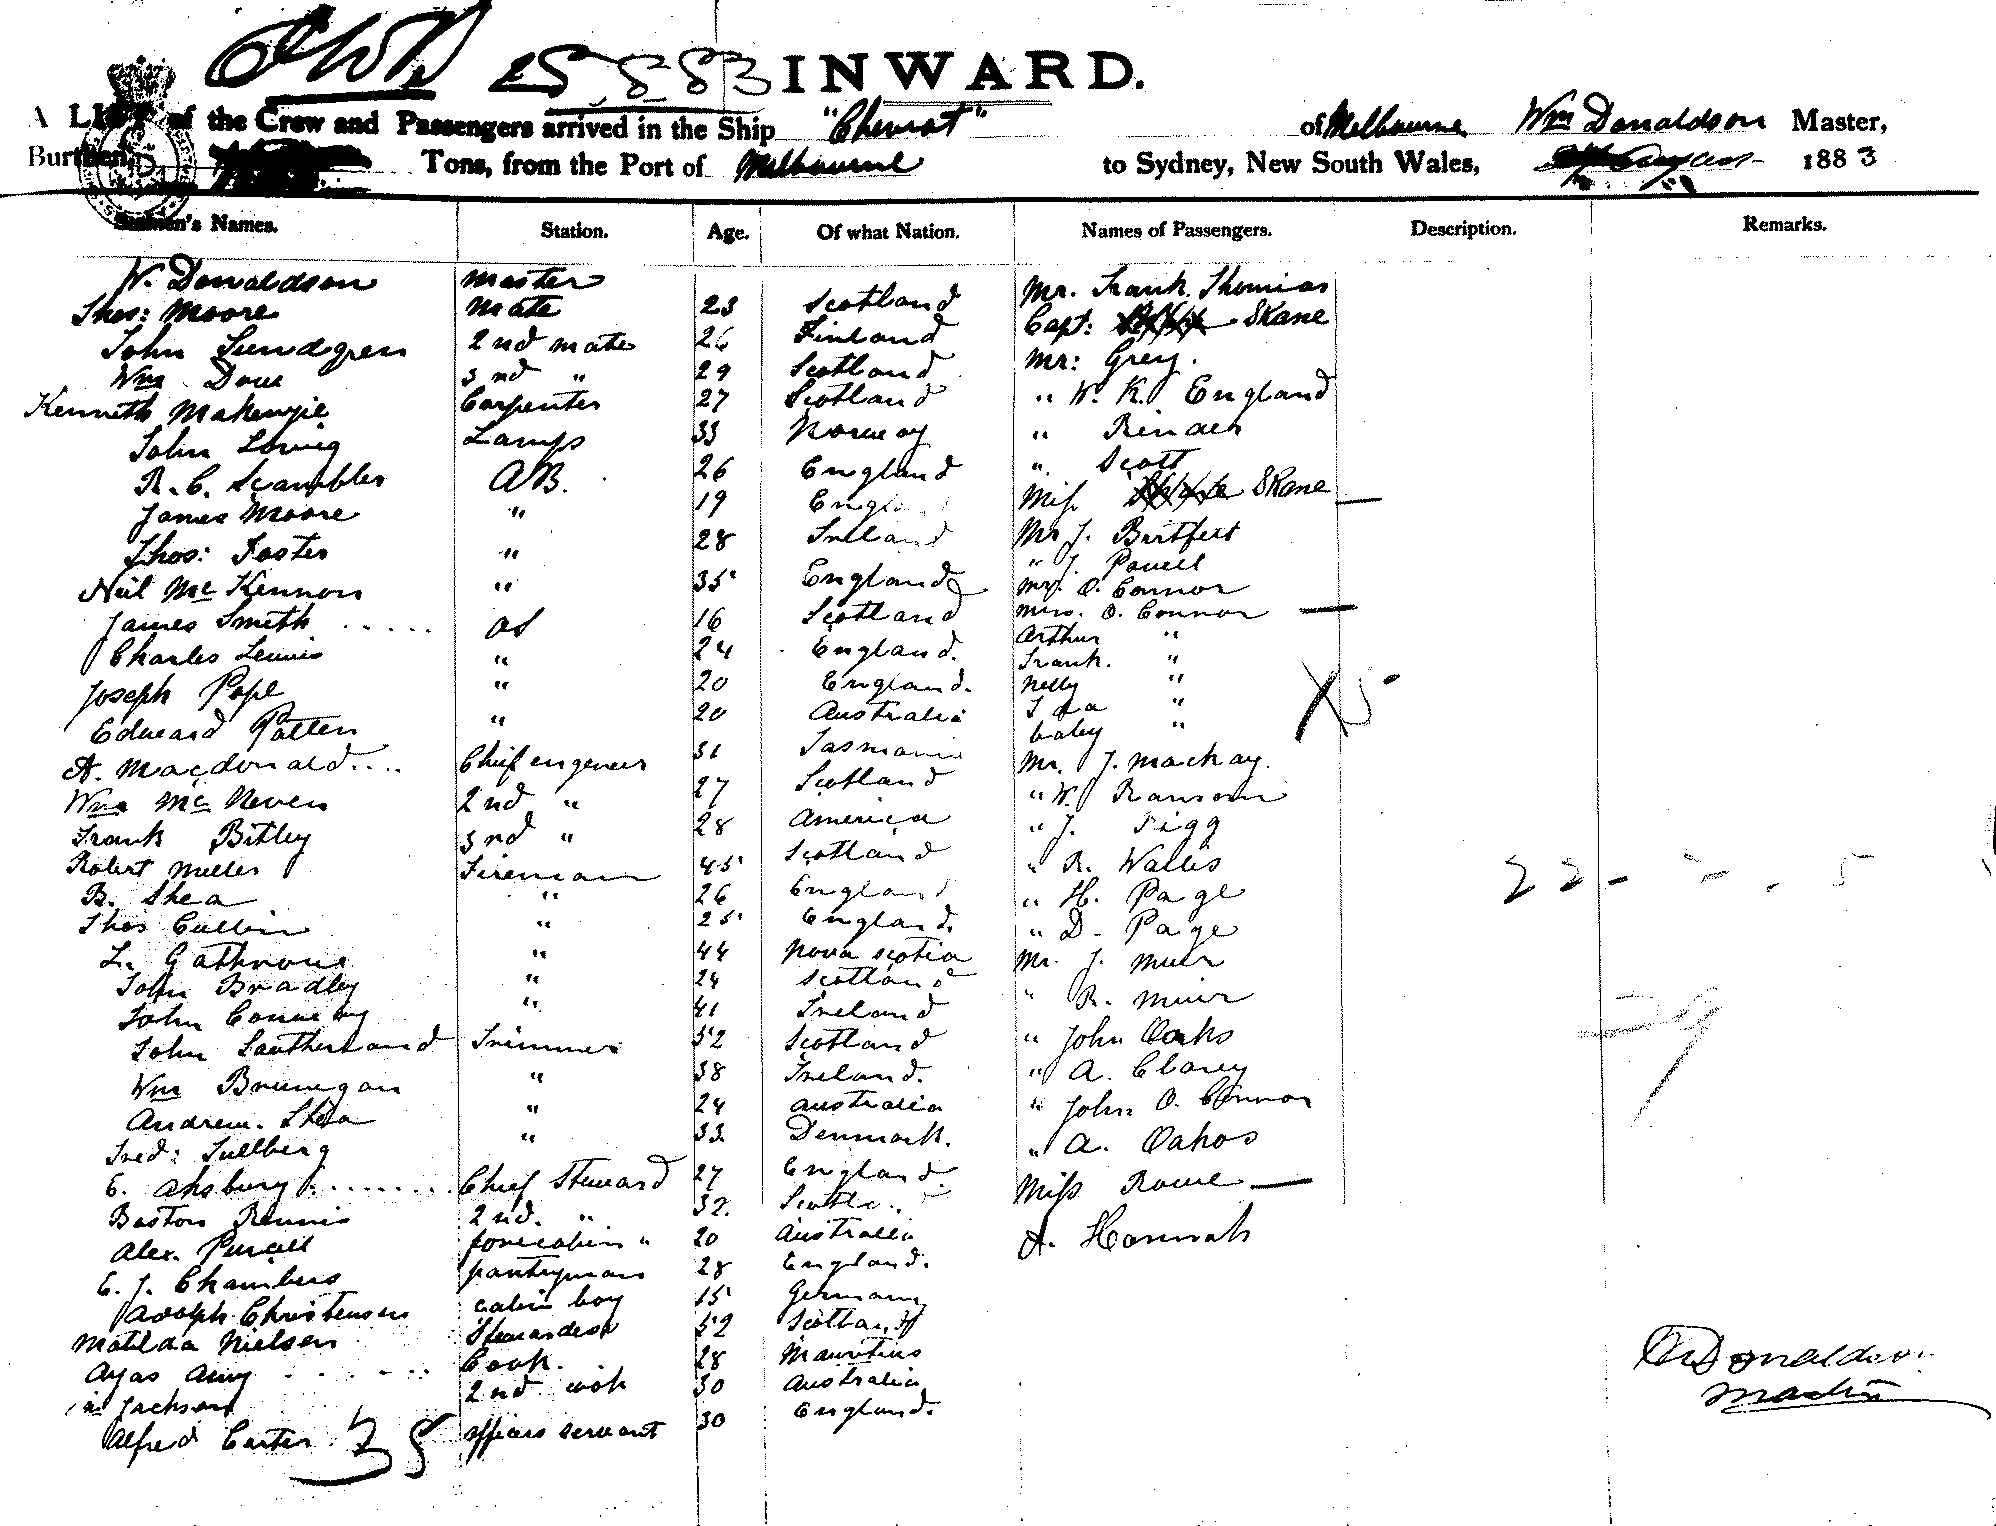 25.8.83 INWARD.
A LIST of the Crew and Passengers arrived in the Ship "Cheviot" of Melbourne Wm Donaldson Master,
Burthen, Tons, from the Port of Melbourne to Sydney, New South Wales, 1883
Seamen's Names. Station. Age. Of what Nation. Names of Passengers. Description. Remarks.
W. Donaldson master Mr. Frank. Thomas
Thos: Moore mate 23 Scotland Capt: Skane
John Sundgren 2nd mate 26 Finland Mr: Grey.
Wm Dow 3rd " 29 Scotland " W. K. England
Kenneth Makenzie Carpenter 27 Scotland " Rinder
John Lowig Lamps 33 Norway " Scott
R. C. Scambler AB. 26 England Miss Skane
James Moore " 19 Mr J. Burtfeet
Thos: Foster " 28 Ireland " J. Powell
Neil Mc Kennon " 35 England Mr. O. Connor
James Smith os 16 Scotland Mrs. O. Connor
Charles Lewis " 24 England. Arthur "
Joseph Pope " 20 England. Frank. "
Edward Patten " 20 Australia Nelly "
A. Macdonald Chief engeneer 31 Tasmania Ida "
Wm Mc Neven 2nd " 27 Scotland baby "
Frank Bitley 3rd " 28 America Mr. J. Mackay.
Robert Miller Fireman 45 Scotland " W. Ransom
B. Shea " 26 England " J. Figg
Thos Cullin " 25 England. " R. Wallis
L. Gathrone " 44 Nova Scotia " H. Paige
John Bradley " 24 Scotland " D. Paige
John " 41 Ireland Mr. J. Muir
John Southerland Trimmer 52 Scotland " R. Muir
Wm Brunegan " 38 Ireland. " John Oaks
Andrew. Shea " 24 Australia " A. Clarey
Fred: Tullberg " 33 Denmark. " John O. Connor
E. Ahsbury Chief Steward 27 England. " A. Oakos
Boston Rennis 2nd. " 32. Miss Rowe
Alex. Purcell forecabin " 20 Australia A. Hannah
E. J. Chambers pantryman 28 England.
Adolph Christensen cabin boy 15 Germany
Matilda Nielsen Stewardess 52 Scotland
Ayas Amy Cook. 28 Mauritius
Jackson 2nd cook 30 Australia
Alfred Carter officers servant 30 England.
38
X5
29
W Donaldson
Master